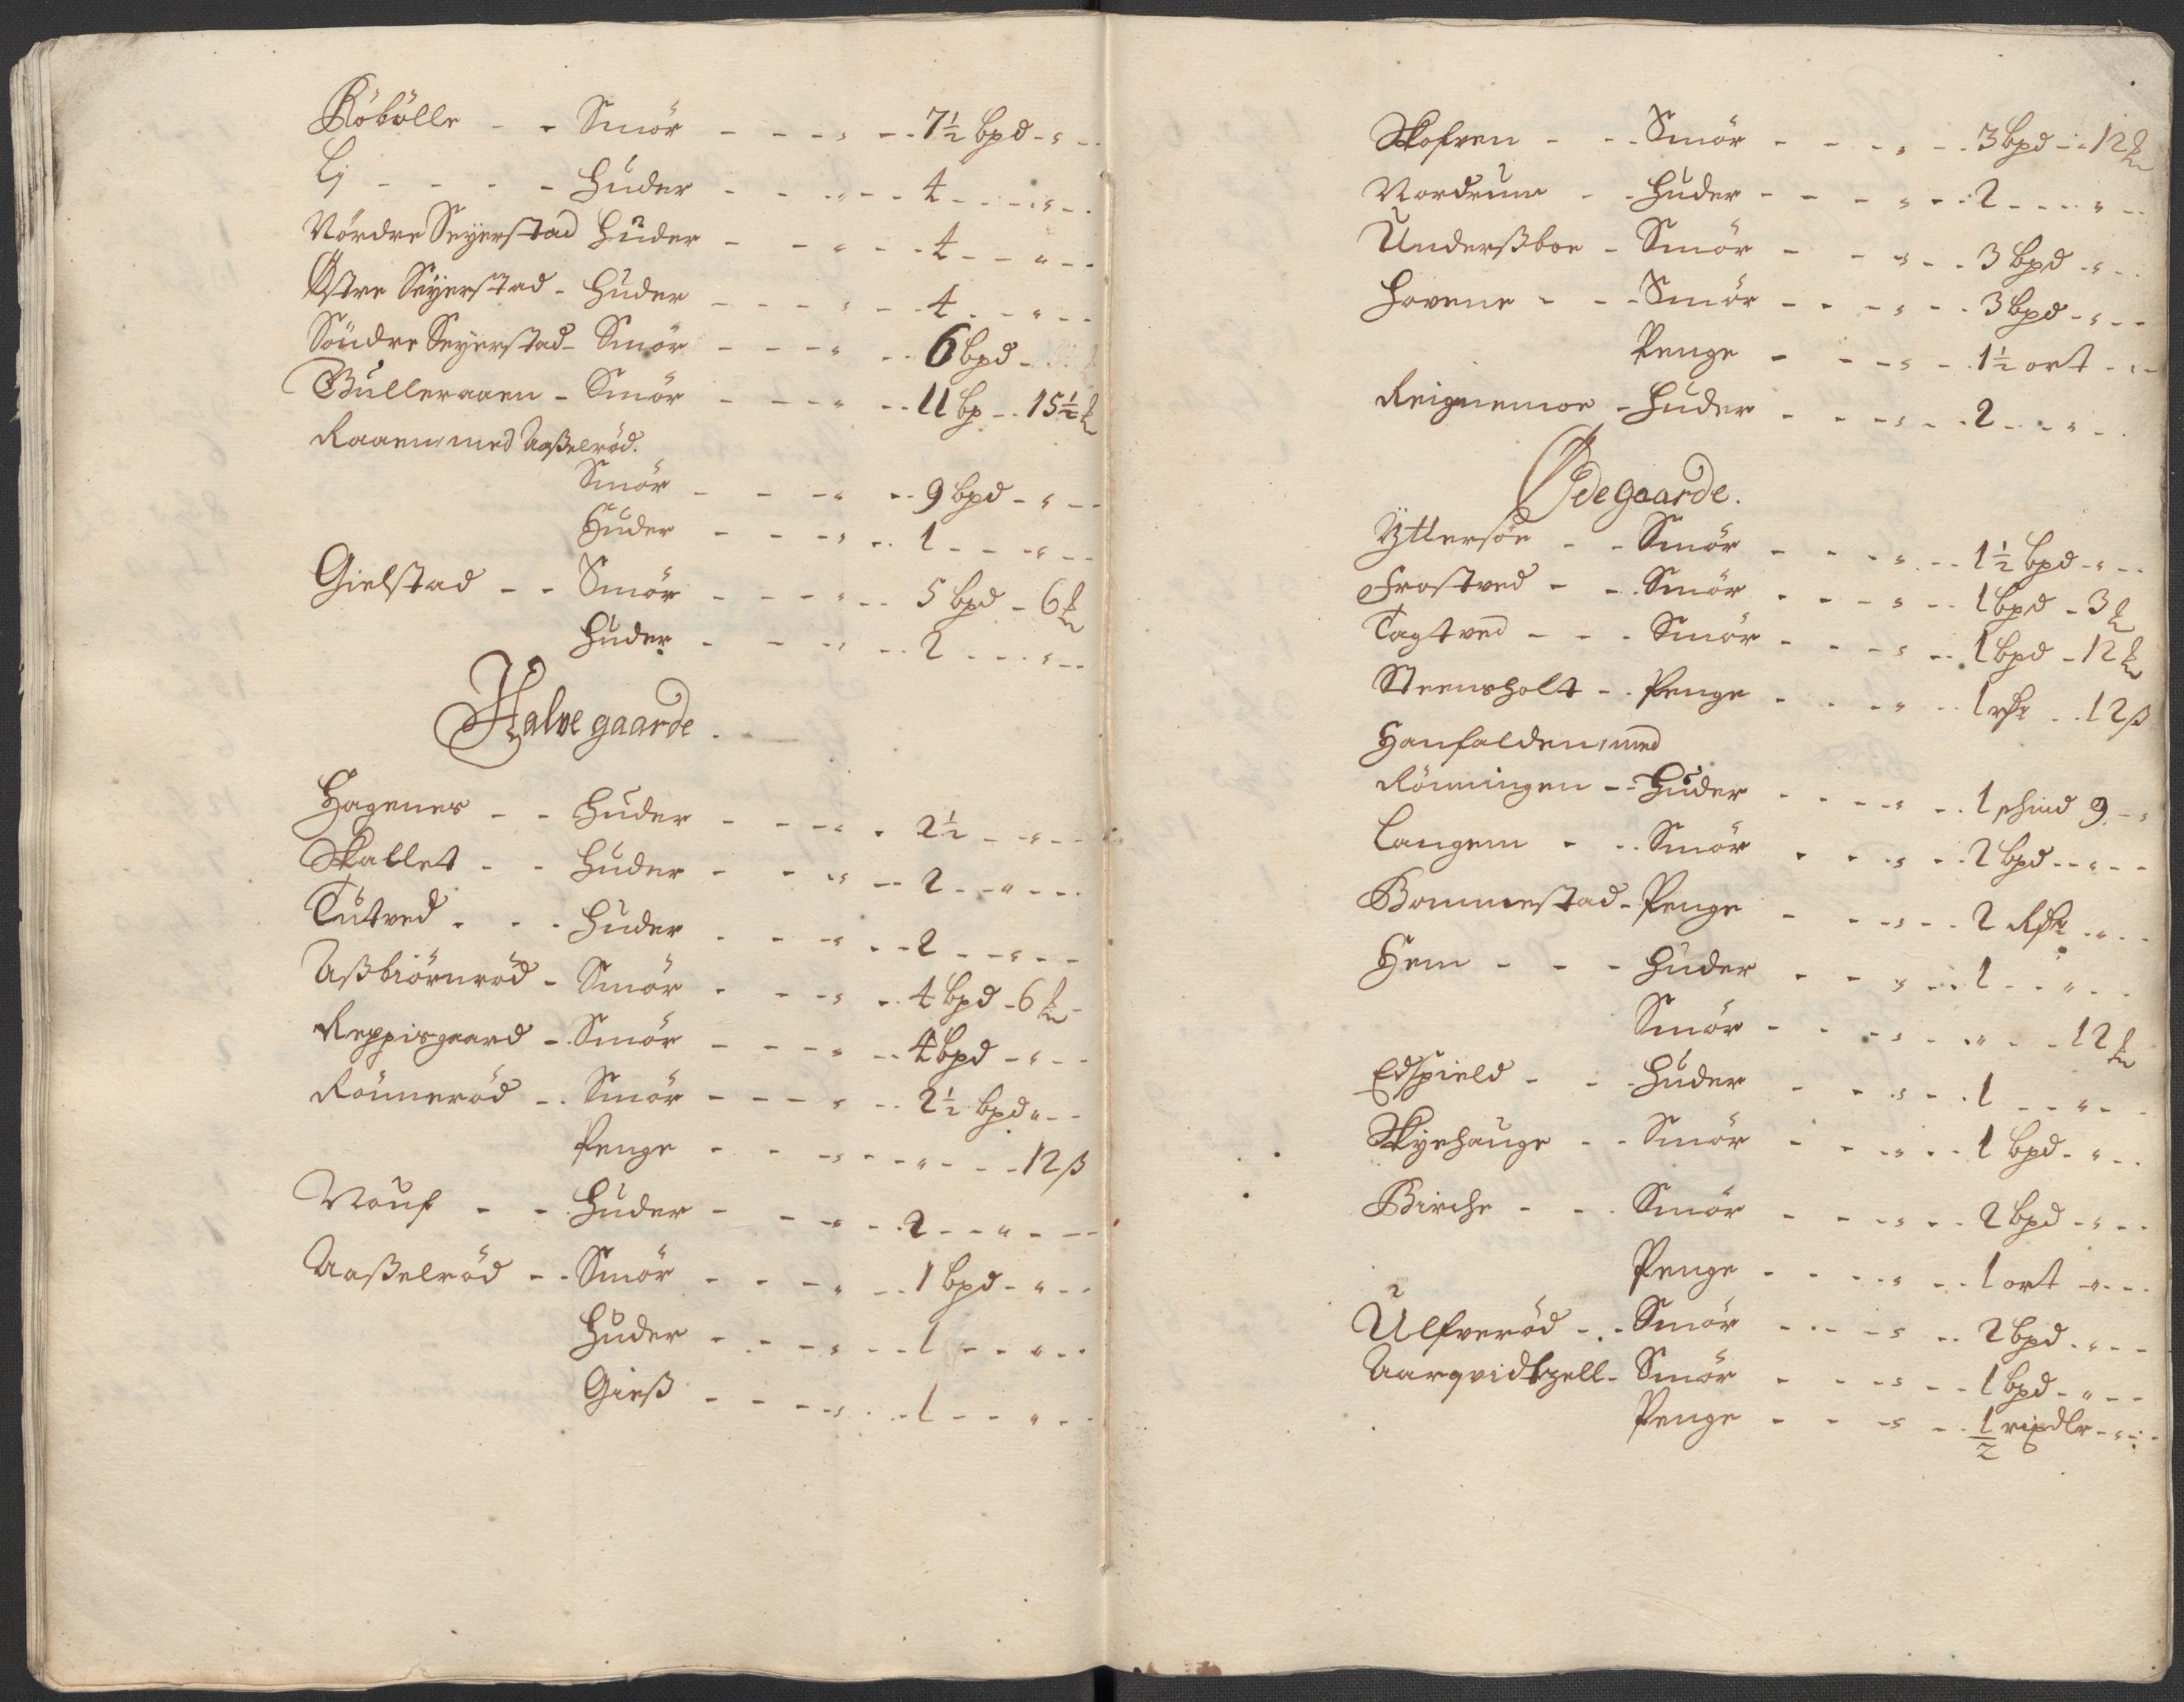 Böbölle - - Smör - - - - 7½ bpd - -
Lj - - - - Huder - - - 4 - - -
Nördre Seyerstad Huder - - - 4 - - -
Østre Seyerstad - Huder - - - 4 - - -
Söndre Seyerstad - Smör - - - 6 bpd -
Bulleraaen - Smör - - - 11 bp - 15½ ℔
Raaen med Aaßelröd.
Smör - - - 9 bpd - -
Huder - - - 1 - - -
Gielstad - - Smör - - - 5 bpd - 6 ℔
Huder - - - 2 - - -
Halve gaarde.
Hagenes - - Huder - - - 2½ - - -
Skallet - - Huder - - - 2 - - -
Tutved - - - Huder - - - 2 - - -
Aßbiörnröd - Smör - - - 4 bpd - 6 ℔ -
Reppisgaard - Smör - - - 4 bpd - -
Rönneröd - - Smör - - - 2½ bpd - -
Penge - - - - - 12 ß
Nouf - - Huder - - - 2 - - -
Aaßelröd - - Smör - - - 1 bpd - -
Huder - - - 1 - - -
Gieß - - - 1 - - -
Skofven - - Smör - - - 3 bpd - 12 ℔
Nordrum - - Huder - - - 2 - - -
Underßboe - Smör - - - 3 bpd - -
Hovene - - Smör - - - 3 bpd - -
Penge - - - 1½ ort - -
Reignemoe - Huder - - - 2 - - -
Ødegaarde.
Yttersöe - - Smör - - - 1½ bpd - -
Frostved - - Smör - - - 1 bpd - 3 ℔
Tagtved - - - Smör - - - 1 bpd - 12 ℔
Steensholt - - Penge - - - 1 rdr - 12 ß
Hanfalden med
Rönningen - - Huder - - - 1 schind 9 - -
Langem - - Smör - - - 2 bpd - - -
Bommestad - Penge - - - 2 Rdr - -
Hem - - - Huder - - - 1 - - -
Smör - - - - - 12 ℔
Edspield - - Huder - - - 1 - - -
Skyehauge - - Smör - - - 1 bpd - -
Birche - - - Smör - - - 2 bpd - -
Penge - - - 1 ort - -
Ulfveröd - - Smör - - - 2 bpd - -
Aarqvidtzell - Smör - - - 1 bpd - -
Penge - - - ½ rixdlr - -